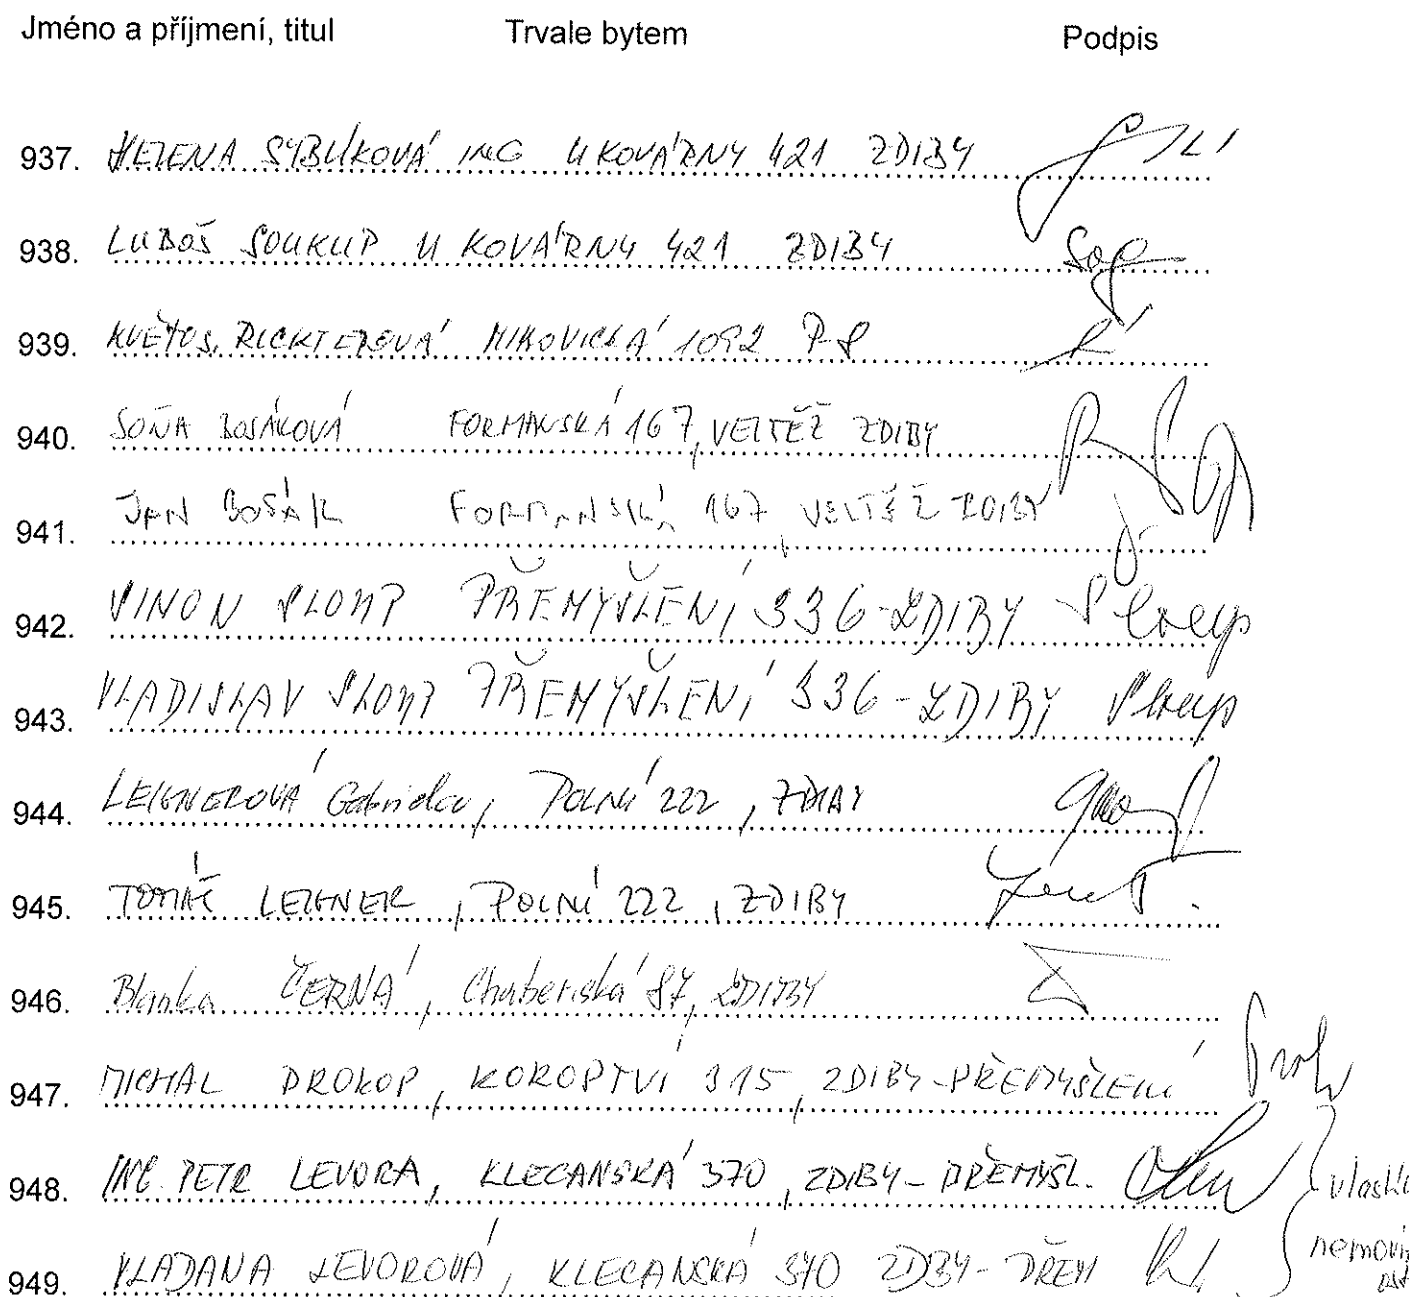 Jméno a příjmení, titul Trvale bytem Podpis
937. HELENA SYBLÍKOVÁ ING U KOVÁRNY 421 ZDIBY
938. LUBOŠ SOUKUP U KOVÁRNY 421 ZDIBY
939. KVĚTOS. RICHTEROVÁ 1092 P-8
940. SOŇA BOSÁKOVÁ FORMANSKÁ 167, VELTĚŽ ZDIBY
941. JAN BOSÁK FORMANSKÁ 167, VELTĚŽ ZDIBY
942. SLOUP PŘEMYŠLENÍ 336 - ZDIBY Sloup
943. VLADISLAV SLOUP PŘEMYŠLENÍ 336 - ZDIBY Sloup
944. LEIGNEROVÁ Gabriela, POLNÍ 222, ZDIBY
945. TOMÁŠ LEIGNER, POLNÍ 222, ZDIBY
946. Blanka ČERNÁ, Chaberská 87, ZDIBY
947. MICHAL PROKOP, KOROPTVÍ 315, ZDIBY-PŘEMYŠLENÍ
948. ING. PETR LEVORA, KLECANSKÁ 370, ZDIBY-PŘEMYŠL.
949. VLADANA LEVOROVÁ, KLECANSKÁ 370 ZDIBY-PŘEM